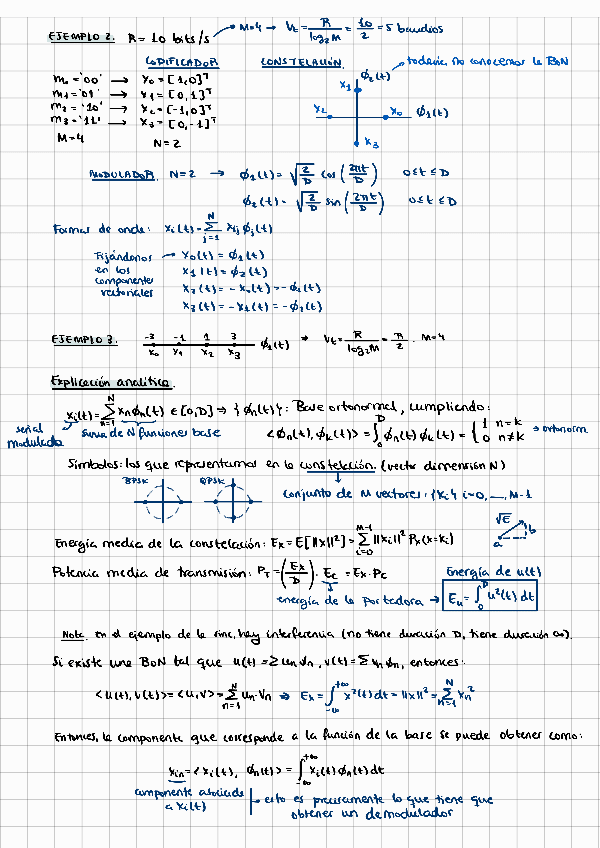 EJEMPLO 2. R = 10 bits/s → M=4 → Vt = R/log₂M = 10/2 = 5 baudios
CODIFICADOR CONSTELACIÓN → todavía no conocemos la BoN
m₀ = '00' → x₀ = [1,0]ᵀ
m₁ = '01' → x₁ = [0,1]ᵀ
m₂ = '10' → x₂ = [-1,0]ᵀ
m₃ = '11' → x₃ = [0,-1]ᵀ
M=4 N=2
ϕ₂(t)
x₁
x₂ x₀ ϕ₁(t)
x₃
MODULADOR. N=2 → ϕ₁(t) = √(2/D) cos(2πt/D) 0≤t≤D
ϕ₂(t) = √(2/D) sin(2πt/D) 0≤t≤D
Formas de onda: xᵢ(t) = Σ_{j=1}^{N} xᵢⱼ ϕⱼ(t)
Fijándonos en los componentes vectoriales → x₀(t) = ϕ₁(t)
x₁(t) = ϕ₂(t)
x₂(t) = -x₀(t) = -ϕ₁(t)
x₃(t) = -x₁(t) = -ϕ₂(t)
EJEMPLO 3. -3 -1 1 3 ϕ₁(t) → Vt = R/log₂M = R/2 . M=4
x₀ x₁ x₂ x₃
Explicación analítica.
xᵢ(t) = Σ_{n=1}^{N} xₙϕₙ(t) ∈ [0,D] ⇒ {ϕₙ(t)}: Base ortonormal, cumpliendo:
señal modulada suma de N funciones base <ϕₙ(t), ϕₖ(t)> = ∫₀ᴰ ϕₙ(t) ϕₖ(t) = { 1 n=k 0 n≠k → ortonorm
Símbolos: los que representamos en la constelación. (vector dimensión N)
BPSK QPSK conjunto de M vectores: {xᵢ} i=0, ..., M-1
Energía media de la constelación: Eₓ = E[||x||²] = Σ_{i=0}^{M-1} ||xᵢ||² Pₓ(x=xᵢ)
√E
a b
Potencia media de transmisión: P_T = (Eₓ/D) · E_c = Eₓ · P_c Energía de u(t)
energía de la portadora → Eᵤ = ∫₀ᴰ u²(t) dt
Nota. en el ejemplo de la sinc, hay interferencia (no tiene duración D, tiene duración ∞).
Si existe una BoN tal que u(t) = Σ uₙ ϕₙ, v(t) = Σ vₙ ϕₙ, entonces:
<u(t), v(t)> = <u, v> = Σ_{n=1}^{N} uₙ · vₙ ⇒ Eₓ = ∫_{-∞}^{+∞} x²(t) dt = ||x||² = Σ_{n=1}^{N} xₙ²
Entonces, la componente que corresponde a la función de la base se puede obtener como:
xᵢₙ = <xᵢ(t), ϕₙ(t)> = ∫_{-∞}^{+∞} xᵢ(t) ϕₙ(t) dt
componente asociada a xᵢ(t) → esto es precisamente lo que tiene que
obtener un demodulador